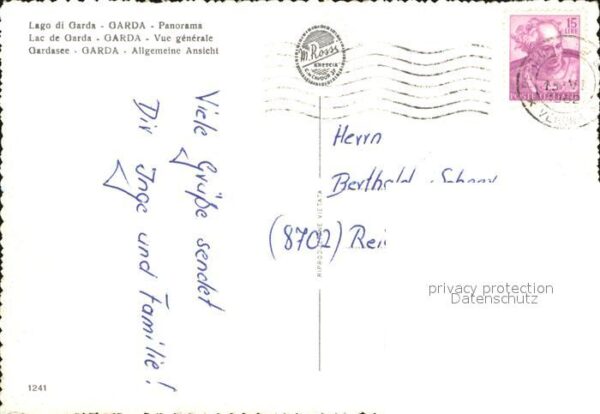 Lago di Garda - GARDA - Panorama
Lac de Garda - GARDA - Vue générale
Gardasee - GARDA - Allgemeine Ansicht
Rossi
BRESCIA
15
LIRE
POSTE ITALIANE
Viele Grüße sendet
Dir Inge und Familie!
RIPRODUZIONE VIETATA
Herrn
Berthold
(8702)
privacy protection
Datenschutz
1241